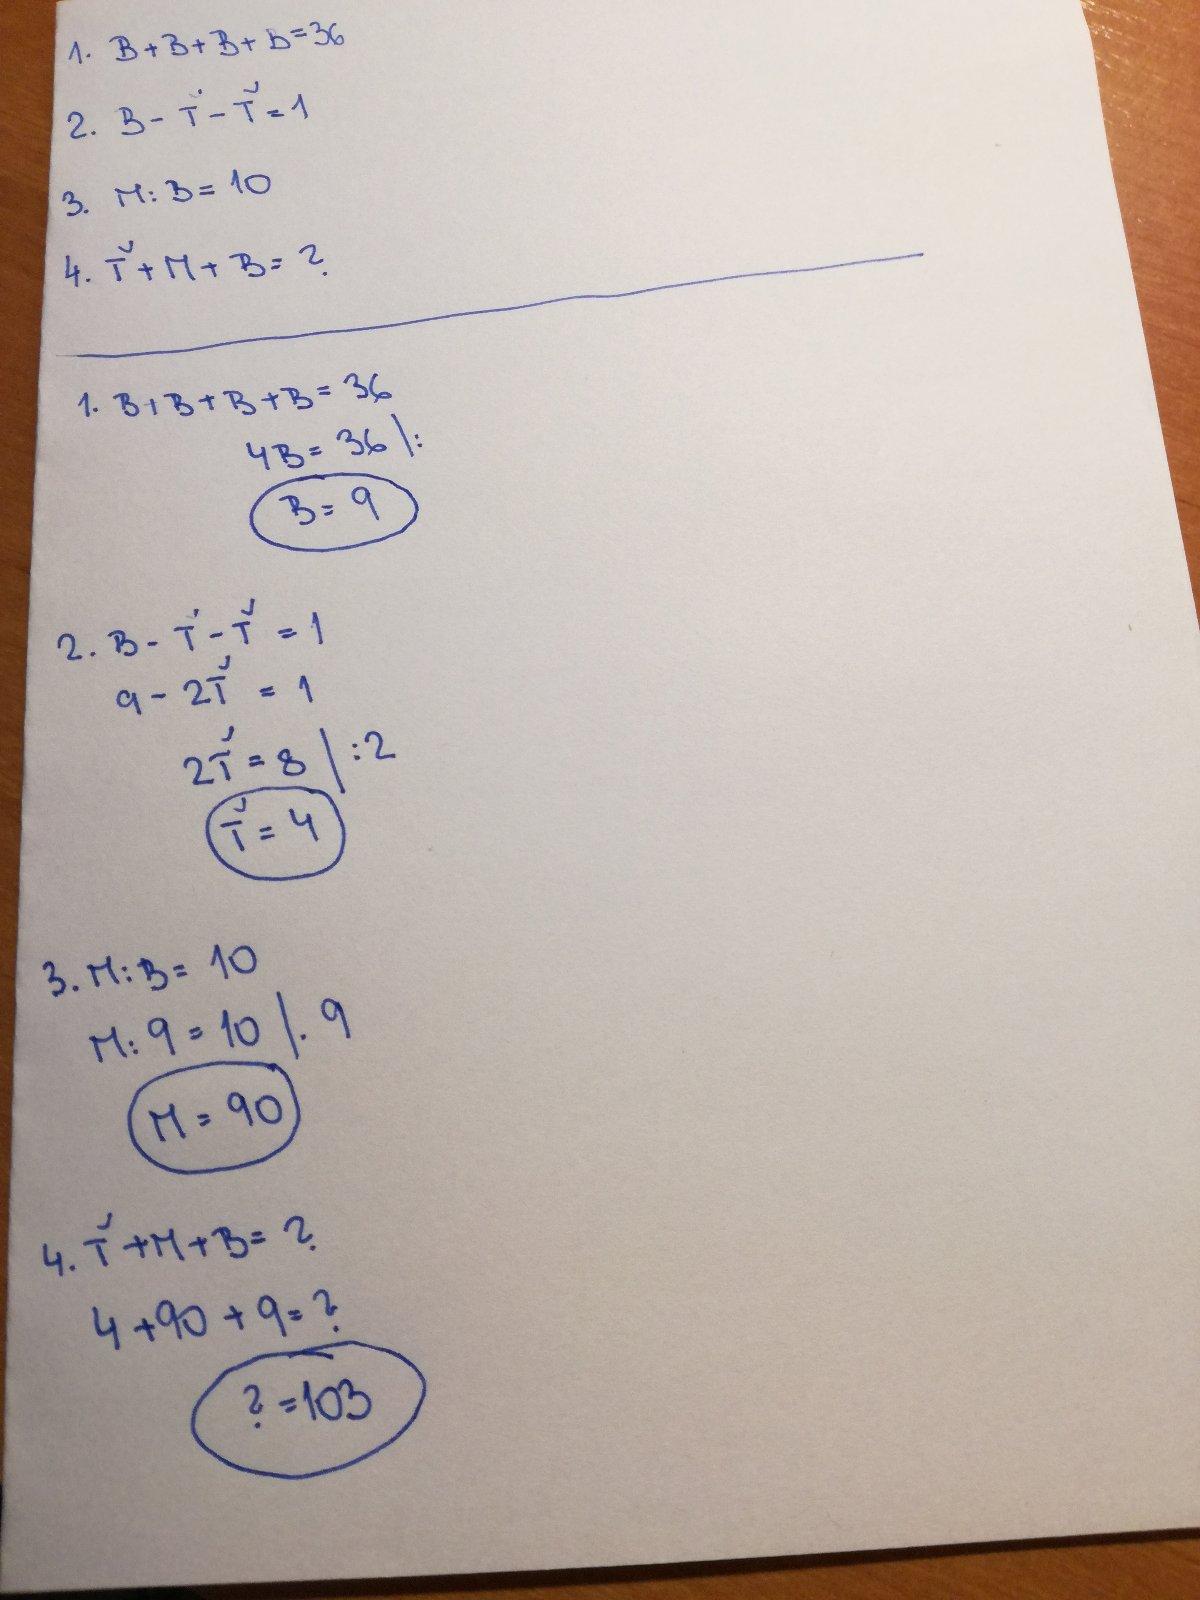 1. B+B+B+B=36
2. B-Ť-Ť=1
3. M:B=10
4. Ť+M+B=?
1. B+B+B+B=36
4B=36|:
B=9
2. B-Ť-Ť=1
9-2Ť=1
2Ť=8|:2
Ť=4
3. M:B=10
M:9=10|.9
M=90
4. Ť+M+B=?
4+90+9=?
?=103